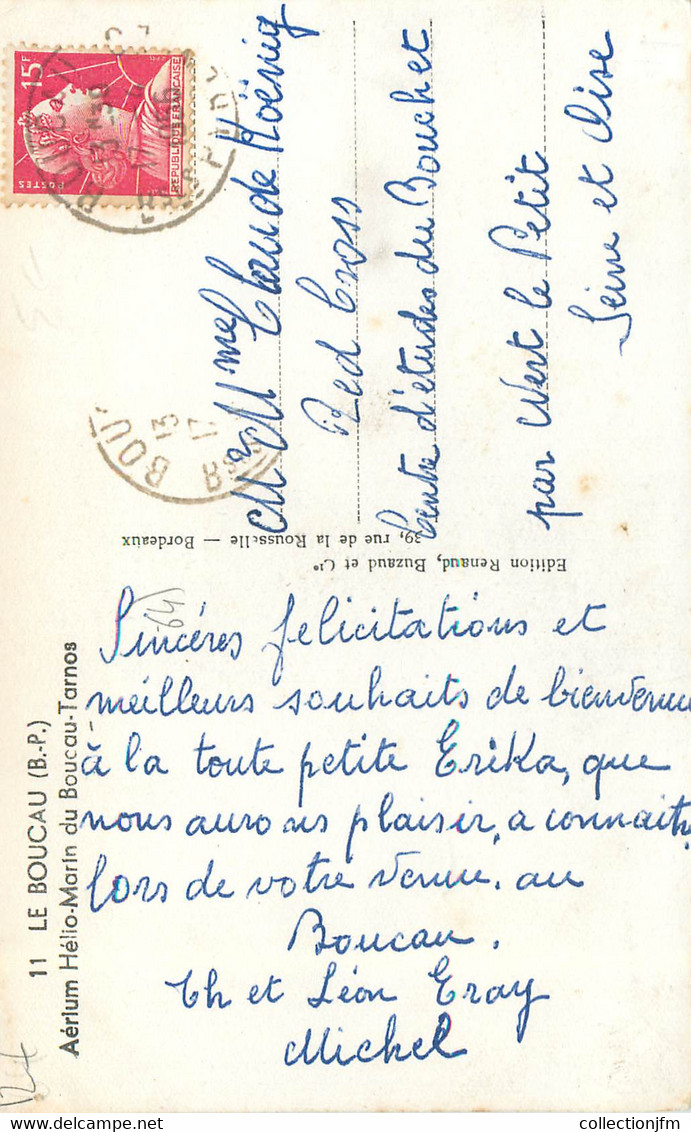 15F
POSTES
REPUBLIQUE FRANCAISE
M et Mme Claude Hoënig
Red Cross
Centre d'études du Bouchet
par Vert le Petit
Seine et Oise
Edition Renaud, Buzaud et Cie
39, rue de la Rousselle — Bordeaux
11 LE BOUCAU (B.-P.)
Aérium Hélio-Marin du Boucau-Tarnos
64
Sincéres felicitations et
meilleurs souhaits de bienvenue
à la toute petite Erika, que
nous aurons plaisir, a connaitr
lors de votre venue. au
Boucau.
Th et Léon Eray
Michel
collectionjfm